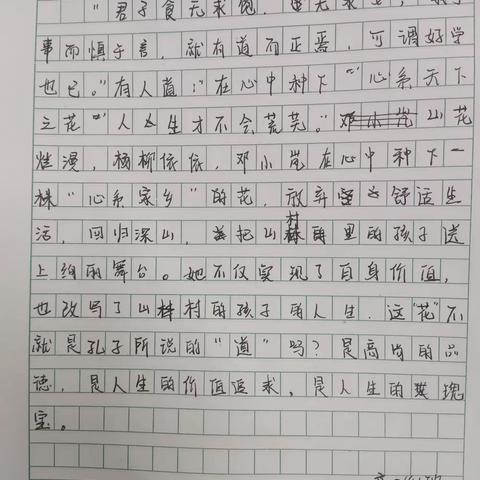 "君子食无求饱,居无求安,
事而慎于言,就有道而正焉,可谓好学
也已。"有人道:"在心中种下"心系天下
之花"人生才不会荒芜。"邓小岚山花
烂漫,杨柳依依,邓小岚在心中种下一
株"心系家乡"的花,放弃舒适生
活,回归深山,把山村里的孩子送
上绚丽舞台。她不仅实现了自身价值,
也改写了山村的孩子的人生,这"花"不
就是孔子所说的"道"吗?是高尚的品
德,是人生的价值追求,是人生的瑰
宝。